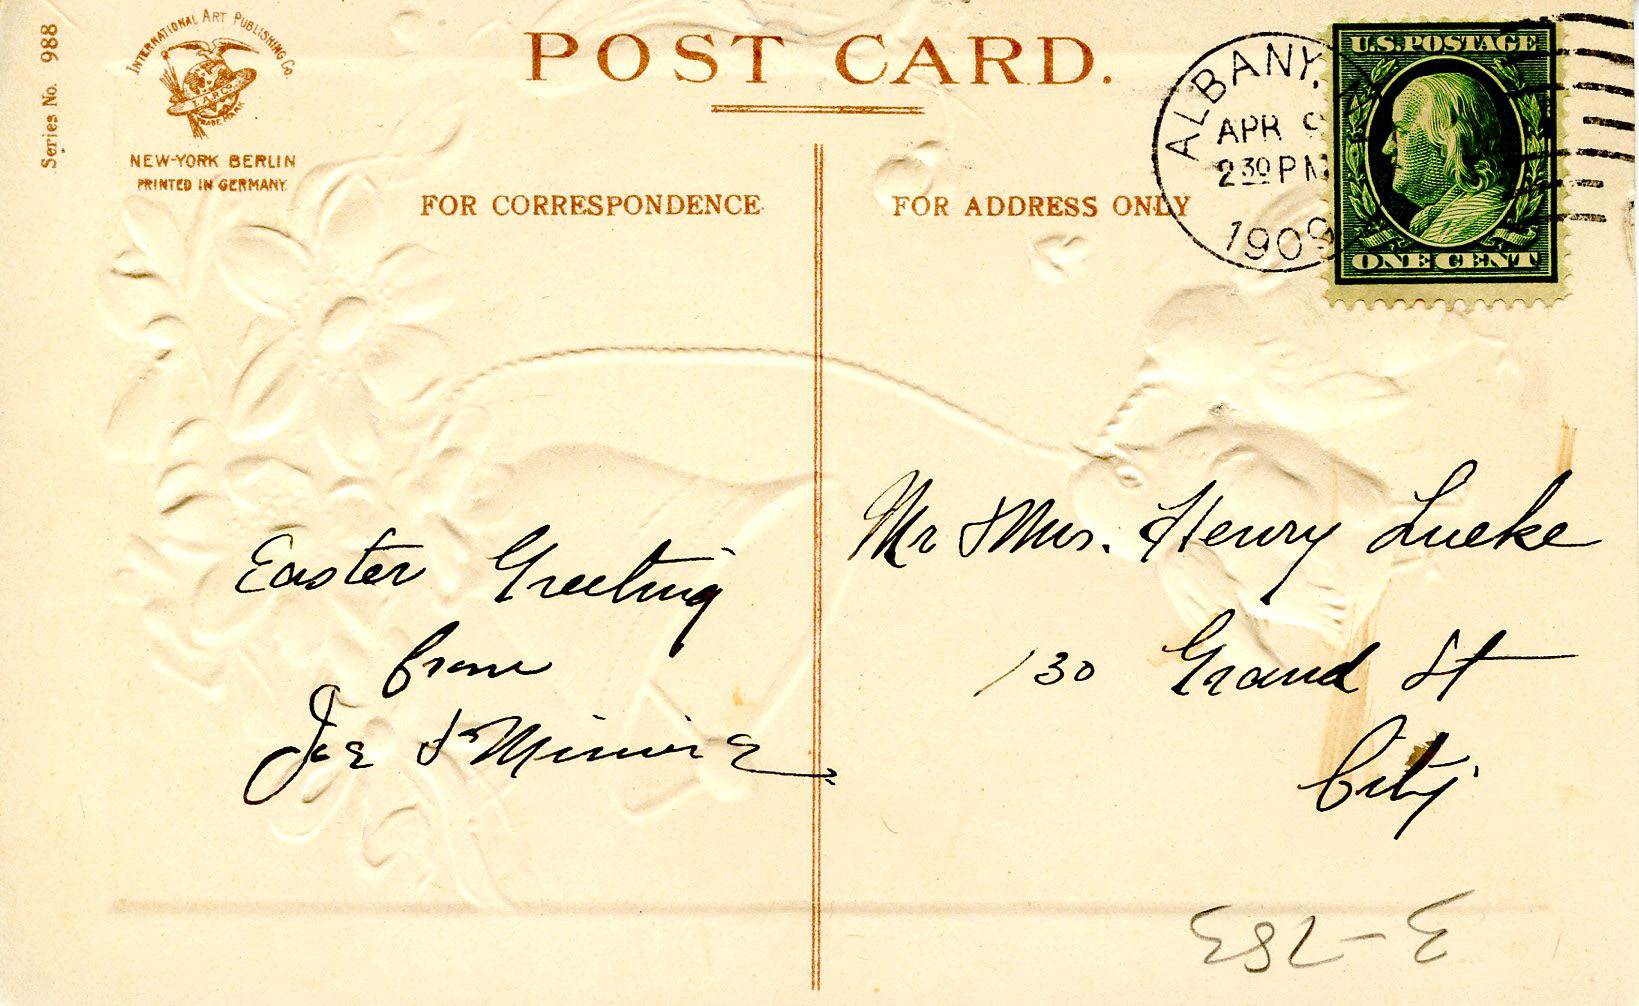 Series No. 988
INTERNATIONAL ART PUBLISHING Co.
I.A.P.Co.
TRADE MARK
NEW-YORK BERLIN
PRINTED IN GERMANY
POST CARD.
ALBANY,
APR 9
2 30 PM
1909
U.S. POSTAGE
ONE CENT
FOR CORRESPONDENCE
FOR ADDRESS ONLY
Easter Greeting
from
Joe & Minnie
Mr & Mrs. Henry Lueke
130 Grand St
City